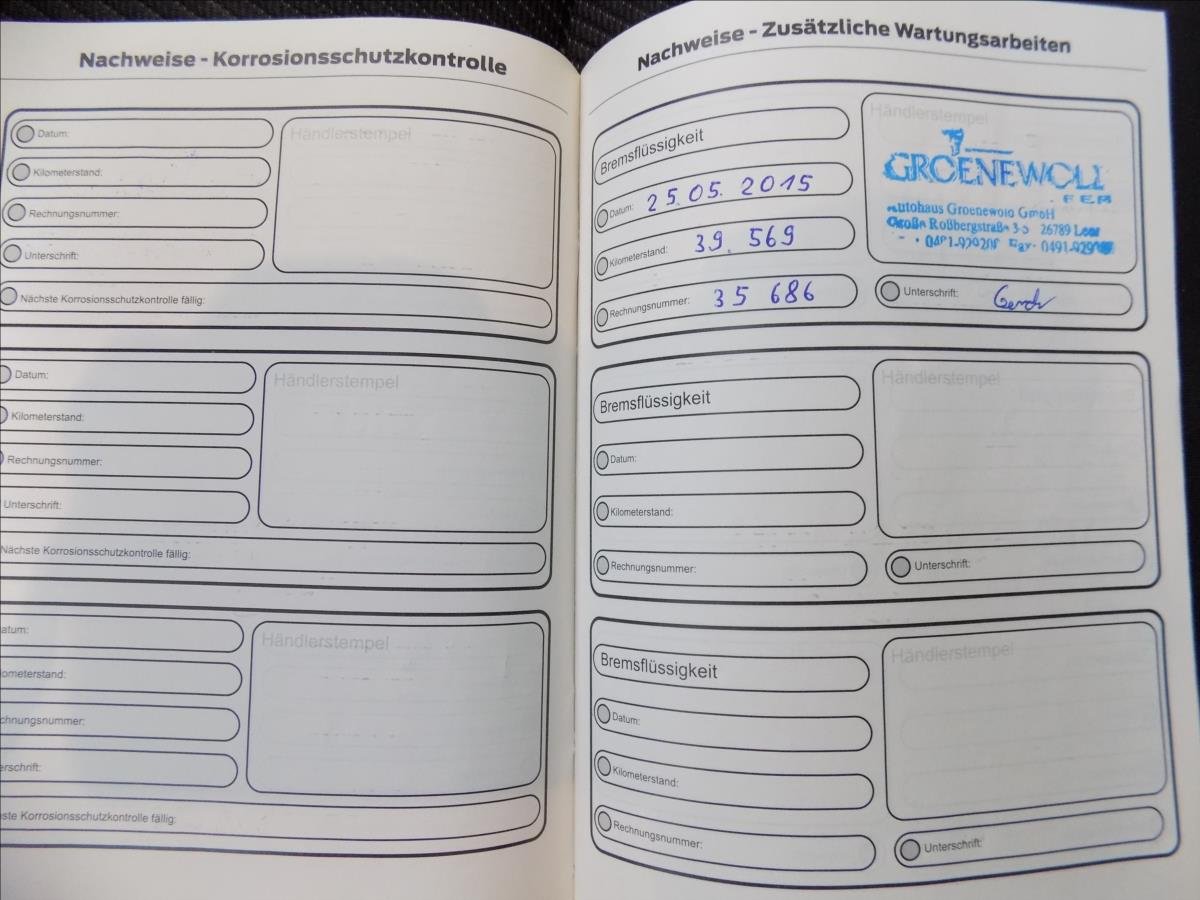 Nachweise - Korrosionsschutzkontrolle
Datum:
Kilometerstand:
Rechnungsnummer:
Unterschrift:
Händlerstempel
Nächste Korrosionsschutzkontrolle fällig:
Datum:
Kilometerstand:
Rechnungsnummer:
Unterschrift:
Händlerstempel
Nächste Korrosionsschutzkontrolle fällig:
atum:
ometerstand:
chnungsnummer:
erschrift:
Händlerstempel
ste Korrosionsschutzkontrolle fällig:
Nachweise - Zusätzliche Wartungsarbeiten
Bremsflüssigkeit
Datum: 25.05.2015
Kilometerstand: 39.569
Rechnungsnummer: 35 686
Händlerstempel
GROENEWOLD
Autohaus Groenewold GmbH
Große Roßbergstraße 26789 Leer
Unterschrift:
Bremsflüssigkeit
Datum:
Kilometerstand:
Rechnungsnummer:
Händlerstempel
Unterschrift:
Bremsflüssigkeit
Datum:
Kilometerstand:
Rechnungsnummer:
Händlerstempel
Unterschrift: